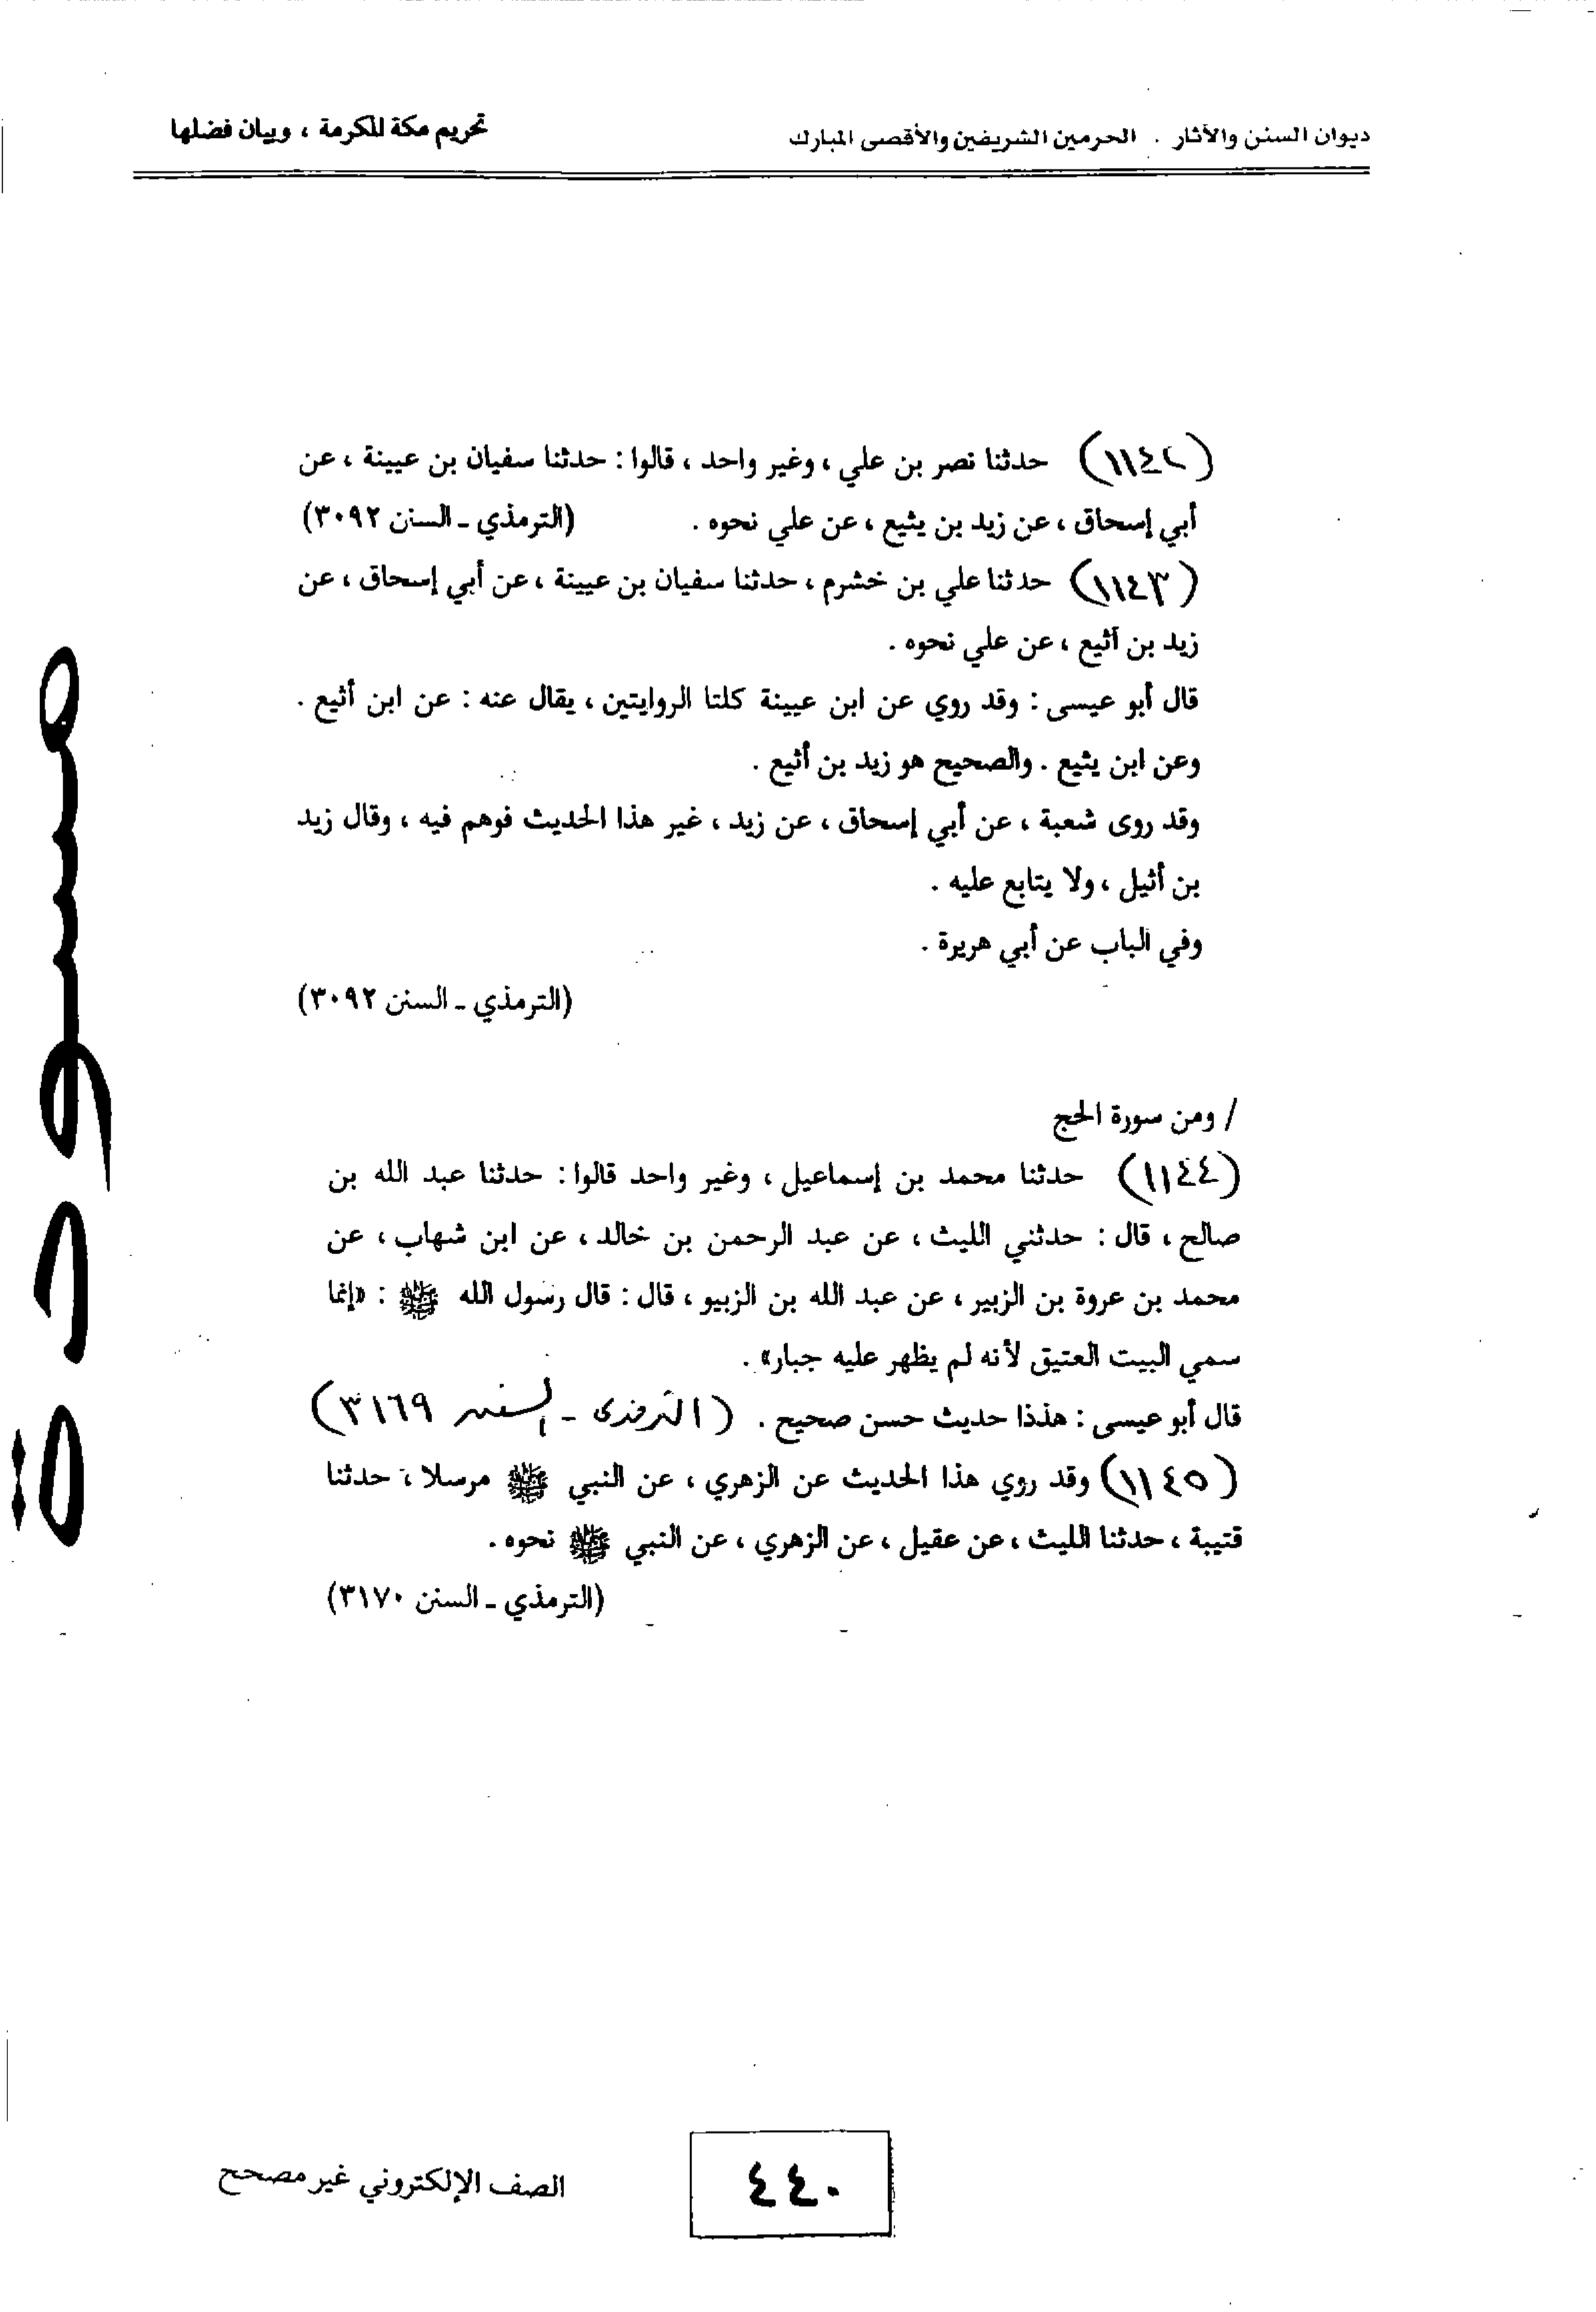 ديوان السنن والآثار . الحرمين الشريفين والأقصى المبارك
تحريم مكة المكرمة ، وبيان فضلها
(١١٤٢) حدثنا نصر بن علي ، وغير واحد ، قالوا : حدثنا سفيان بن عيينة ، عن
أبي إسحاق ، عن زيد بن يثيع ، عن علي نحوه . (الترمذي ـ السنن ٣٠٩٢)
(١١٤٣) حدثنا علي بن خشرم ، حدثنا سفيان بن عيينة ، عن أبي إسحاق ، عن
زيد بن أثيع ، عن علي نحوه .
قال أبو عيسى : وقد روي عن ابن عيينة كلتا الروايتين ، يقال عنه : عن ابن أثيع .
وعن ابن يثيع . والصحيح هو زيد بن أثيع .
وقد روى شعبة ، عن أبي إسحاق ، عن زيد ، غير هذا الحديث فوهم فيه ، وقال زيد
بن أثيل ، ولا يتابع عليه .
وفي الباب عن أبي هريرة .
(الترمذي ـ السنن ٣٠٩٢)
/ ومن سورة الحج
(١١٤٤) حدثنا محمد بن إسماعيل ، وغير واحد قالوا : حدثنا عبد الله بن
صالح ، قال : حدثني الليث ، عن عبد الرحمن بن خالد ، عن ابن شهاب ، عن
محمد بن عروة بن الزبير ، عن عبد الله بن الزبيو ، قال : قال رسول الله ﷺ : «إنما
سمي البيت العتيق لأنه لم يظهر عليه جبار» .
قال أبو عيسى : هذذا حديث حسن صحيح . (الترمذى ـ السنن ٣١٦٩)
(١١٤٥) وقد روي هذا الحديث عن الزهري ، عن النبي ﷺ مرسلا ، حدثنا
قتيبة ، حدثنا الليث ، عن عقيل ، عن الزهري ، عن النبي ﷺ نحوه .
(الترمذي ـ السنن ٣١٧٠)
مسودة
٤٤٠
الصف الإلكتروني غير مصحح